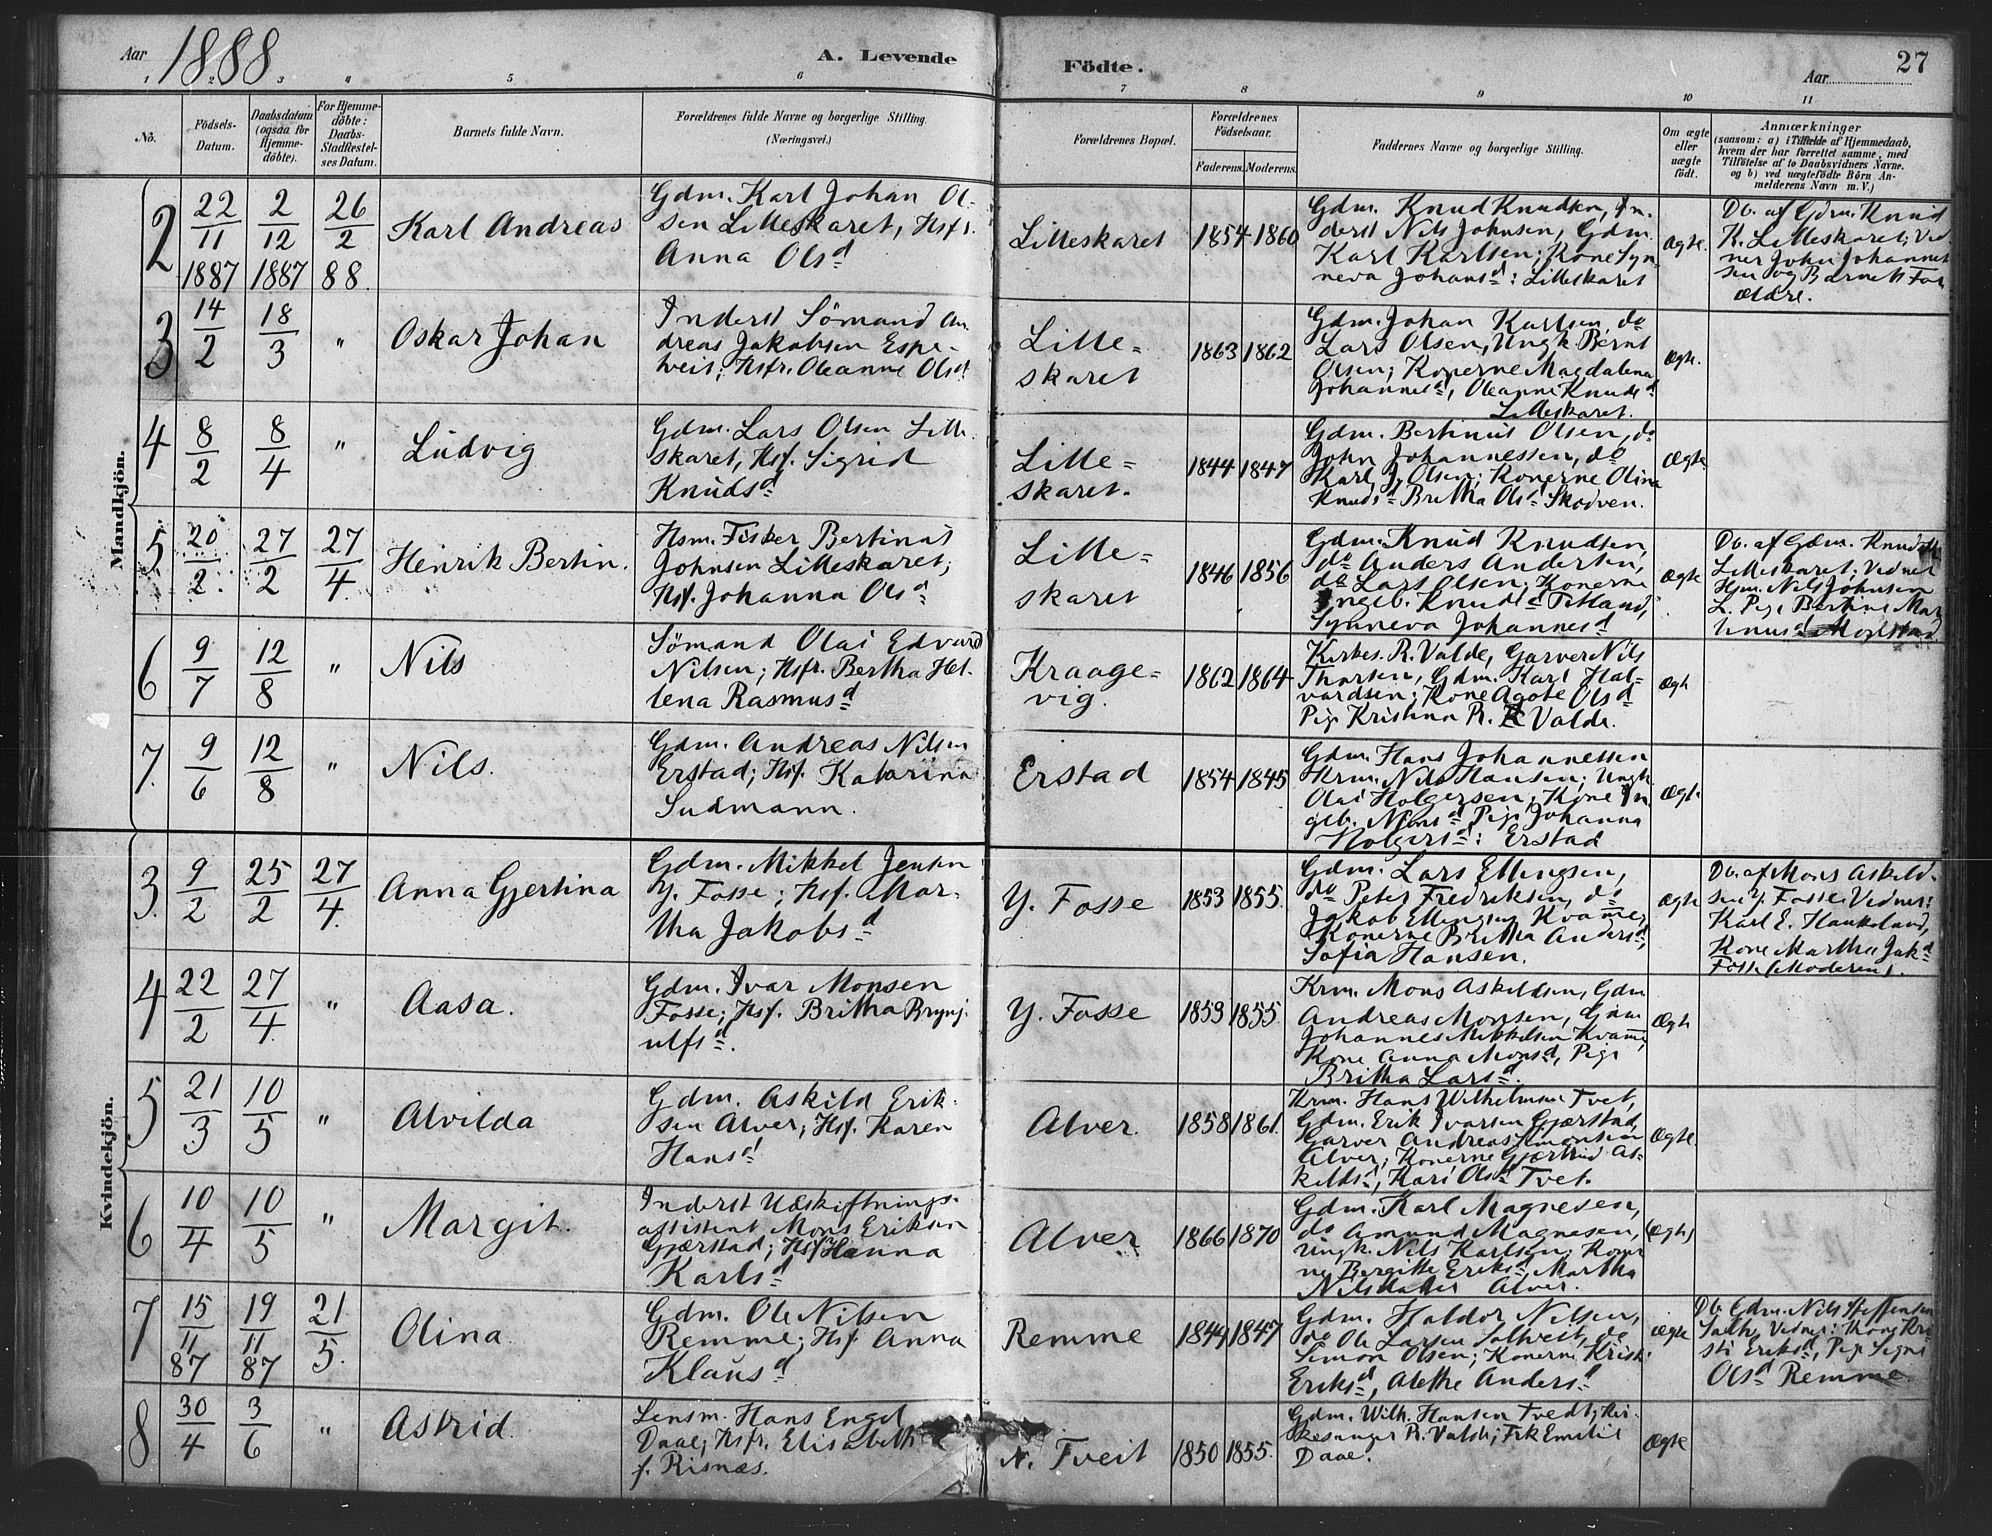 Aar 1888
A. Levende
Födte.
Aar
27
1 2 3 4 5 6 7 8 9 10 11
No.
Födsels-
Datum.
Daabsdatum
(ogsaa for
Hjemme-
döbte).
For Hjemme-
döbte:
Daabs-
Stadfæstel-
ses Datum.
Barnets fulde Navn.
Forældrenes fulde Navne og borgerlige Stilling.
(Næringsvei.)
Forældrenes Bopæl.
Forældrenes
Födselsaar.
Faderens.
Moderens.
Faddernes Navne og borgerlige Stilling.
Om ægte
eller
uægte
födt.
Anmærkninger
(saasom: a) i Tilfælde af Hjemmedaab,
hvem der har forrettet samme, med
Tilföielse af to Daabsvidners Navne.
og b) ved uægtefödte Börn An-
melderens Navn m. V.)
Mandkjön.
2
22/11 1887
2/12 1887
26/2 88.
Karl Andreas
Gdm. Karl Johan Ol-
sen Lilleskaret, Hsfr.
Anna Olsd
Lilleskaret
1854 1860
Gdm. Knud Knudsen, In-
derst Nils Johnsen, Gdm.
Karl Karlsen; Kone Syn-
neva Johansd: Lilleskaret
Ægte.
Db. af Gdm. Knud
K. Lilleskaret; Vid-
ner John Johannes-
sen og Barnets For-
ældre.
3
14/2
18/3
"
Oskar Johan
Inderst Sömand An-
dreas Jakobsen Espe-
tveit; Hsfr. Oleanne Olsd
Lille-
skaret
1863 1862
Gdm. Johan Karlsen, do
Lars Olsen, Ungk. Bernt
Olsen; Konerne Magdalena
Johannesd, Oleanne Knudsd
Lilleskaret.
Ægte.
4
8/2
8/4
"
Ludvig
Gdm. Lars Olsen Lille-
skaret, Hsf. Sigrid
Knudsd
Lille-
skaret.
1844 1847
Gdm. Bertinus Olsen, do
John Johannessen, do
Karl J. Olsen; Konerne Olina
Knudsd Britha Olsd Skodven.
Ægte
5
20/2
27/2
27/4
Henrik Bertin.
Hsm. Fisker Bertinus
Johnsen Lilleskaret;
Hsf. Johanna Olsd
Lille-
skaret
1846 1856
Gdm. Knud Knudsen,
do Anders Andersen,
do Lars Olsen; Konerne
Ingeb. Knudsd Titland,
Synneva Johannesd
Ægte
Db. af Gdm. Knud
Lilleskaret; Vidner
Hjm. Nils Johnsen
L. Pige Bertine Mar-
6
9/7
12/8
"
Nils
Sömand Olai Edvard
Nilsen; Hsfr. Bertha He-
lena Rasmusd
Kraage-
vig.
1862 1864
Kirkes. R. Valde, Garver Nils
Thorsen, Gdm. Karl Hal-
vardsen; Kone Agote Olsd
Pige Kristina R. Valde.
Ægt
7.
9/6
12/8
"
Nils.
Gdm. Andreas Nilsen
Erstad; Hsf. Katarina
Sudmann.
Erstad
1854 1845
Gdm. Hans Johannessen
Krm. Nils Hansen; Ungk.
Olai Holgersen; Kone In-
geb. Nilsd Pige Johanna
Holgersd: Erstad
Ægte
Kvindekjön.
3.
9/2
25/2
27/4.
Anna Gjertina
Gdm. Mikkel Jensen
Y. Fosse; Hsf. Mar-
tha Jakobsd
Y. Fosse
1853 1855.
Gdm. Lars Ellingsen,
do Peter Fredriksen, do
Jakob Ellingsen Kvamme;
Konerne Britha Andersd,
Sofia Hansen.
Ægte
Db. af Mons Askild-
sen Y. Fosse. Vidner:
Karl E. Haukeland,
Kone Martha Jakd
Fosse (Moderen).
4
22/2
27/4.
"
Aasa.
Gdm. Ivar Monsen
Fosse; Hsf. Britha Brynj-
ulfsd.
Y. Fosse
1859 1855.
Krm. Mons Askildsen, Gdm
Andreas Monsen, Gdm
Johannes Mikkelsen Kvamme,
Kone Anna Monsd, Pige
Britha Larsd.
Ægte
5
21/3
10/5
"
Alvilda
Gdm. Askild Erik-
sen Alver; Hsf. Karen
Hansd
Alver.
1858 1861.
Krm. Hans Wilhelmsen Tvet,
Gdm. Erik Ivarsen Gjærstad,
Garver Andreas Simonsen
Alver; Konerne Gjærtrud As-
kildsd, Kari Olsd Tvet.
Ægte.
6
10/4
10/5
"
Margit.
Inderst Udskiftnings-
assistent Mons Eriksen
Gjærstad; Hsf Hanna
Karlsd
Alver
1866 1870
Gdm. Karl Magnesen,
do Amund Magnesen,
Ungk. Nils Karlsen; Koner-
ne Bergitte Eriksd, Martha
Nilsdatter Alver.
Ægte
7
15/11 87
19/11 87
21/5.
Olina.
Gdm. Ole Nilsen
Remme; Hsf. Anna
Klausd
Remme
1844 1847
Gdm. Haldor Nilsen,
do Ole Larsen Soltveit, do
Simon Olsen; Konerne Kristi
Eriksd, Alethe Andersd
Ægte
Db. Gdm. Nils Steffensen
Vidner: Kone Kri-
sti Eriksd, Pige Signi
Olsd Remme.
8
30/4
3/6
"
Astrid.
Lensm. Hans Engel
Daae; Hsfr. Elisabeth
f. Risnæs.
N. Tveit
1850 1855.
Gdm. Wilh. Hansen Tvedt, Kir-
kesanger R. Valde; Frk Emilie
Daae.
Ægte